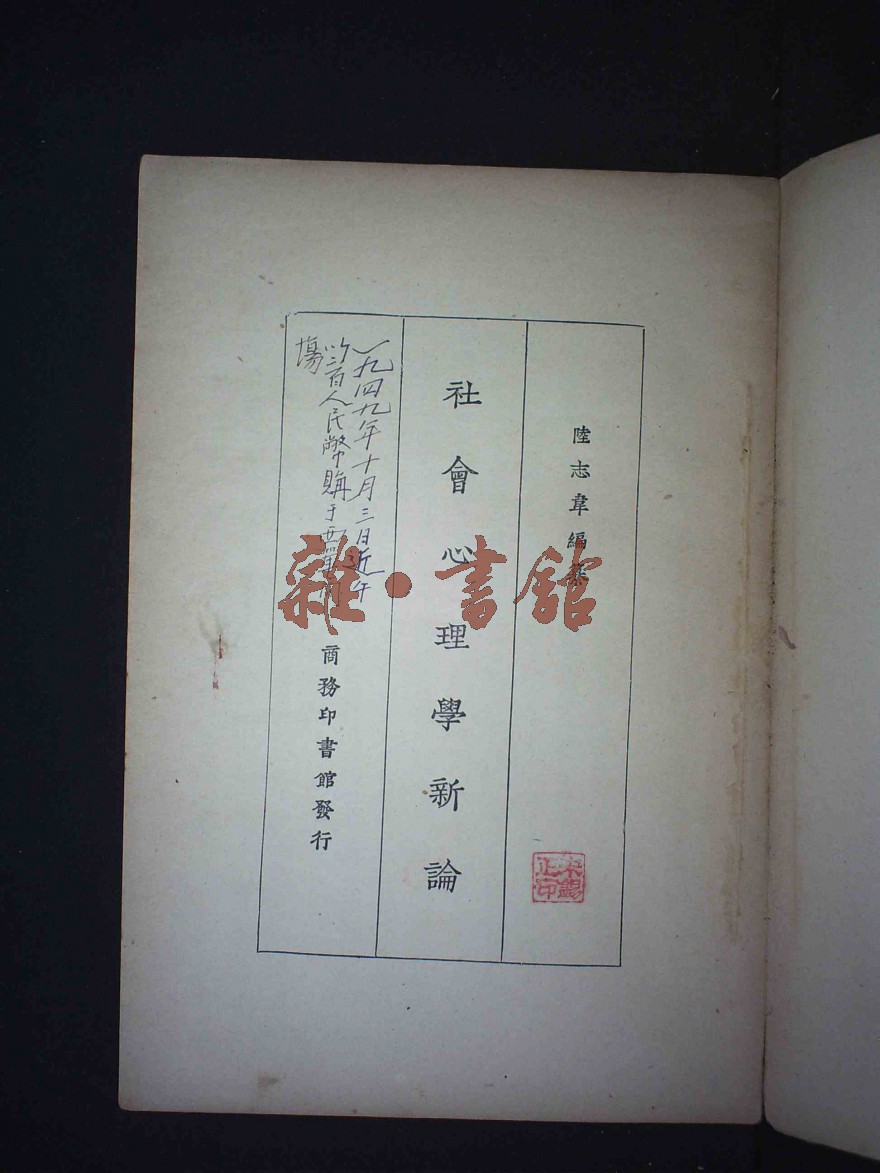 陸志韋編纂
社會心理學新論
一九四九年十月三日近午
以三百人民幣購于西單商
場
商務印書館發行
雜·書館